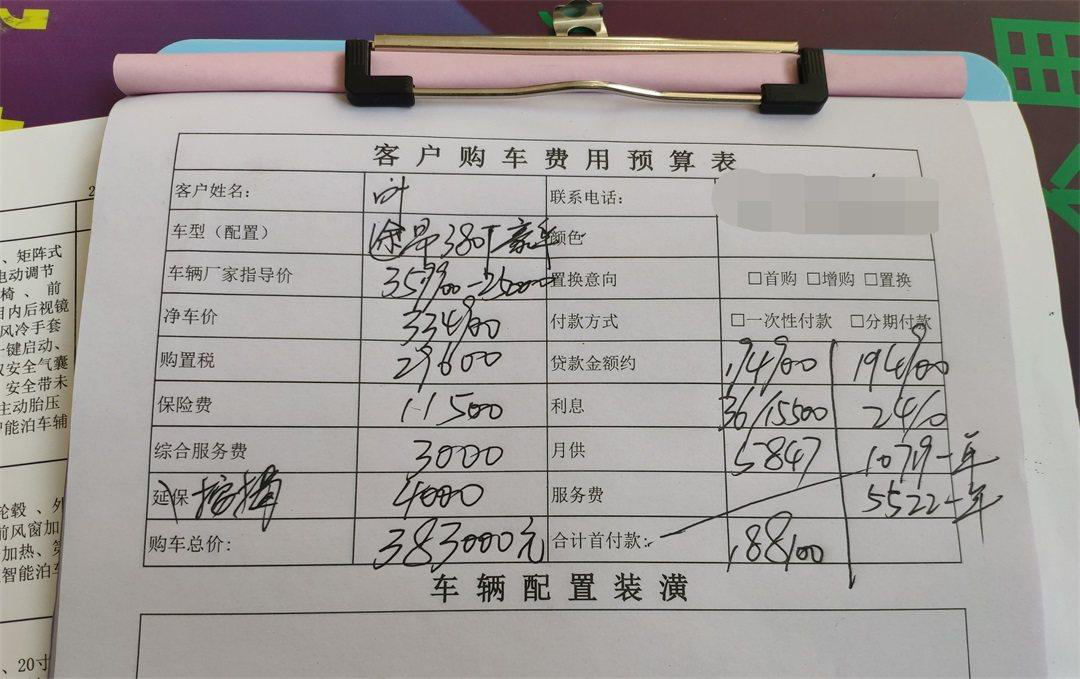 客户购车费用预算表
客户姓名: 叶 联系电话:
车型（配置） 途昂380T豪华 颜色
车辆厂家指导价 359900-25000 置换意向 □首购 □增购 □置换
净车价 334900 付款方式 □一次性付款 □分期付款
购置税 29600 贷款金额约 194900 194900
保险费 11500 利息 36/15500
综合服务费 3000 月供 5847 1079一年
延保 4000 服务费 5522一年
购车总价: 383000元 合计首付款: 188100
车辆配置装潢
、矩阵式
电动调节
椅、前
目内后视镜
风冷手套
一键启动、
双安全气囊
安全带未
主动胎压
智能泊车辅
轮毂、外
前风窗加
加热、第
智能泊车
、20寸